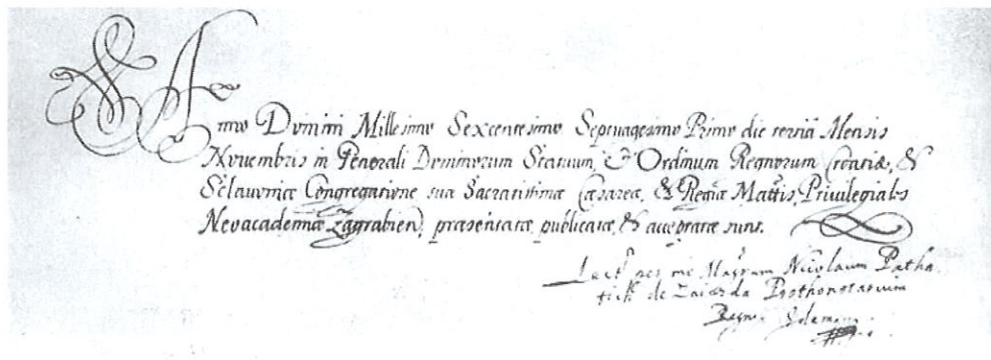 Anno Domini Millesimo Sexcentesimo Septuagesimo Primo die tertiâ Mensis
Nouembris in Generali Dominorum Statuum, & Ordinum Regnorum Croatiæ, &
Sclauoniæ Congregatione sua Sacratissimæ Cæsareæ, & Regiæ Mattis, Priuilegiales
Neoacademiæ Zagrabien, præsentatæ publicatæ, & acceptatæ sunt.
Lect per me Magrum Nicolaum Patha
tich de Zaiezda Prothonotarium
Regni